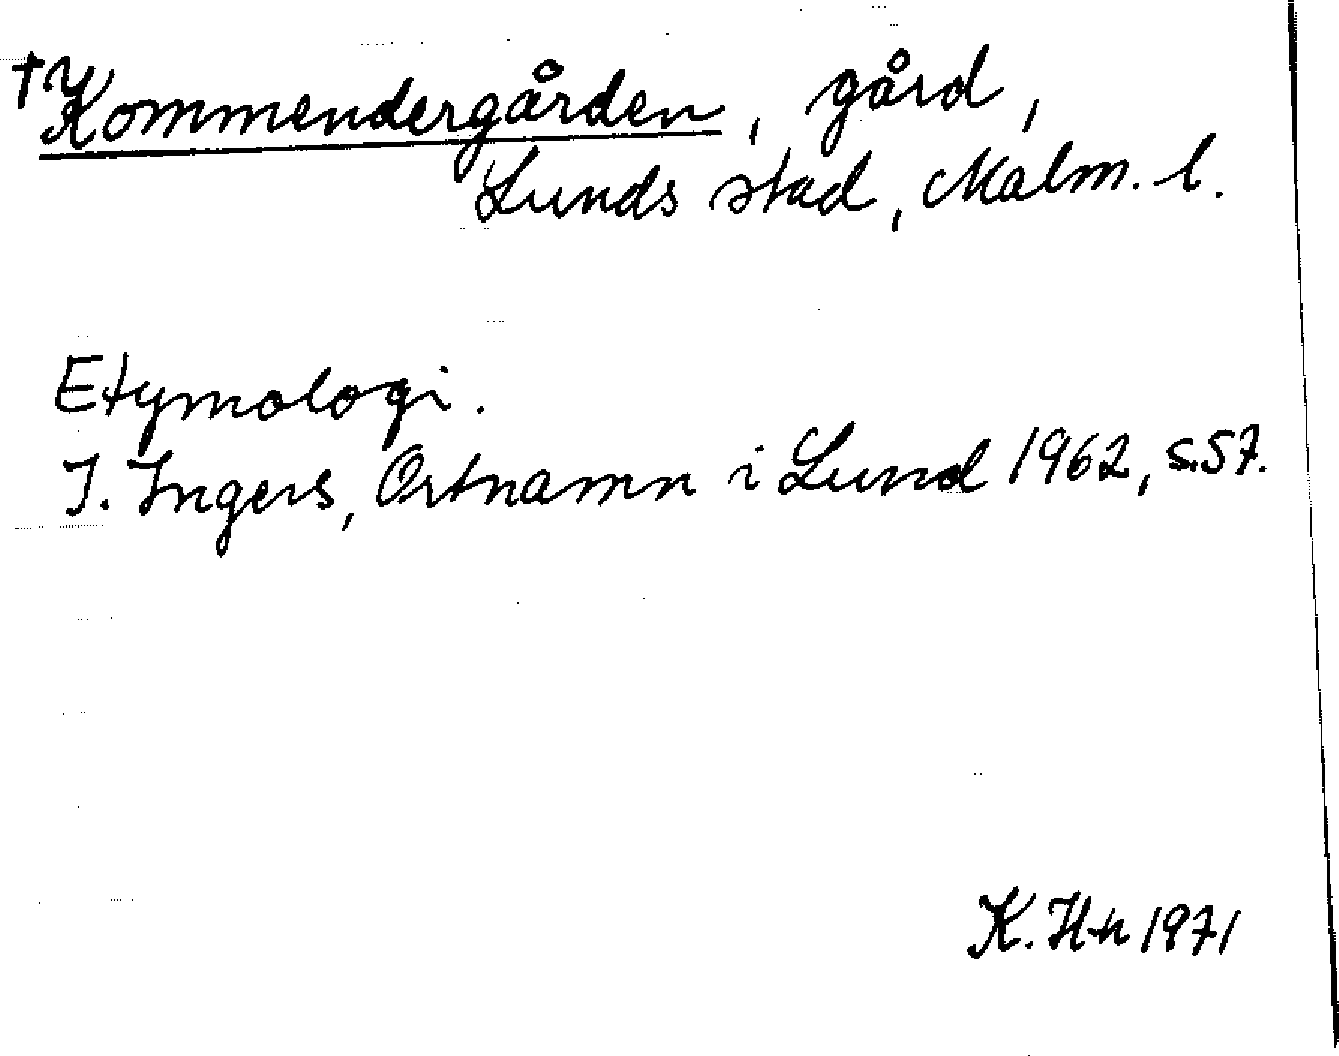 †Kommendergården, gård,
Lunds stad, Malm. l.
Etymologi.
I. Ingers, Ortnamn i Lund 1962, s.57.
K. H-n 1971